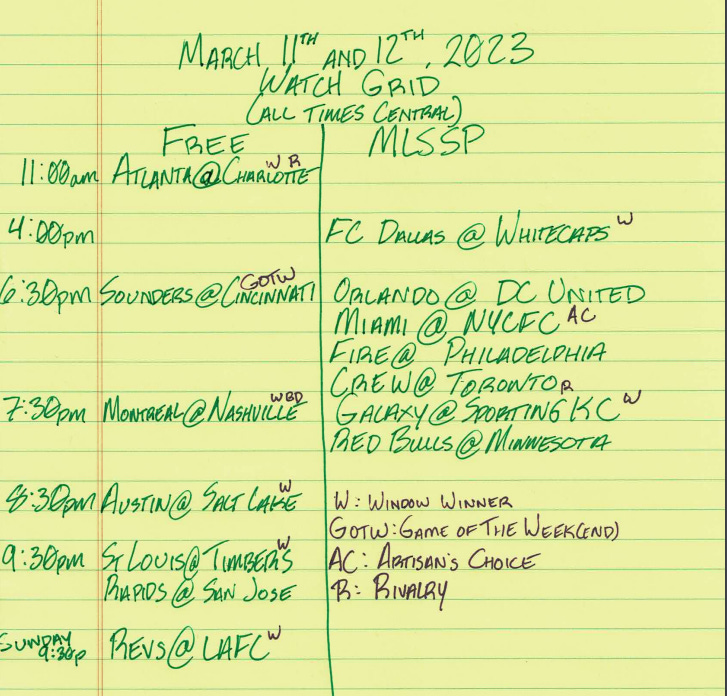 MARCH 11TH AND 12TH, 2023
WATCH GRID
(ALL TIMES CENTRAL)
FREE MLSSP
11:00am ATLANTA @ CHARLOTTE W R
4:00pm FC DALLAS @ WHITECAPS W
6:30pm SOUNDERS @ CINCINNATI GOTW ORLANDO @ DC UNITED
MIAMI @ NYCFC AC
FIRE @ PHILADELPHIA
CREW @ TORONTO R
7:30pm MONTREAL @ NASHVILLE WBD GALAXY @ SPORTING KC W
RED BULLS @ MINNESOTA
8:30pm AUSTIN @ SALT LAKE W W: WINDOW WINNER
GOTW: GAME OF THE WEEK(END)
9:30pm ST LOUIS @ TIMBERS W AC: ARTISAN'S CHOICE
RAPIDS @ SAN JOSE R: RIVALRY
SUNDAY
9:30p REVS @ LAFC W